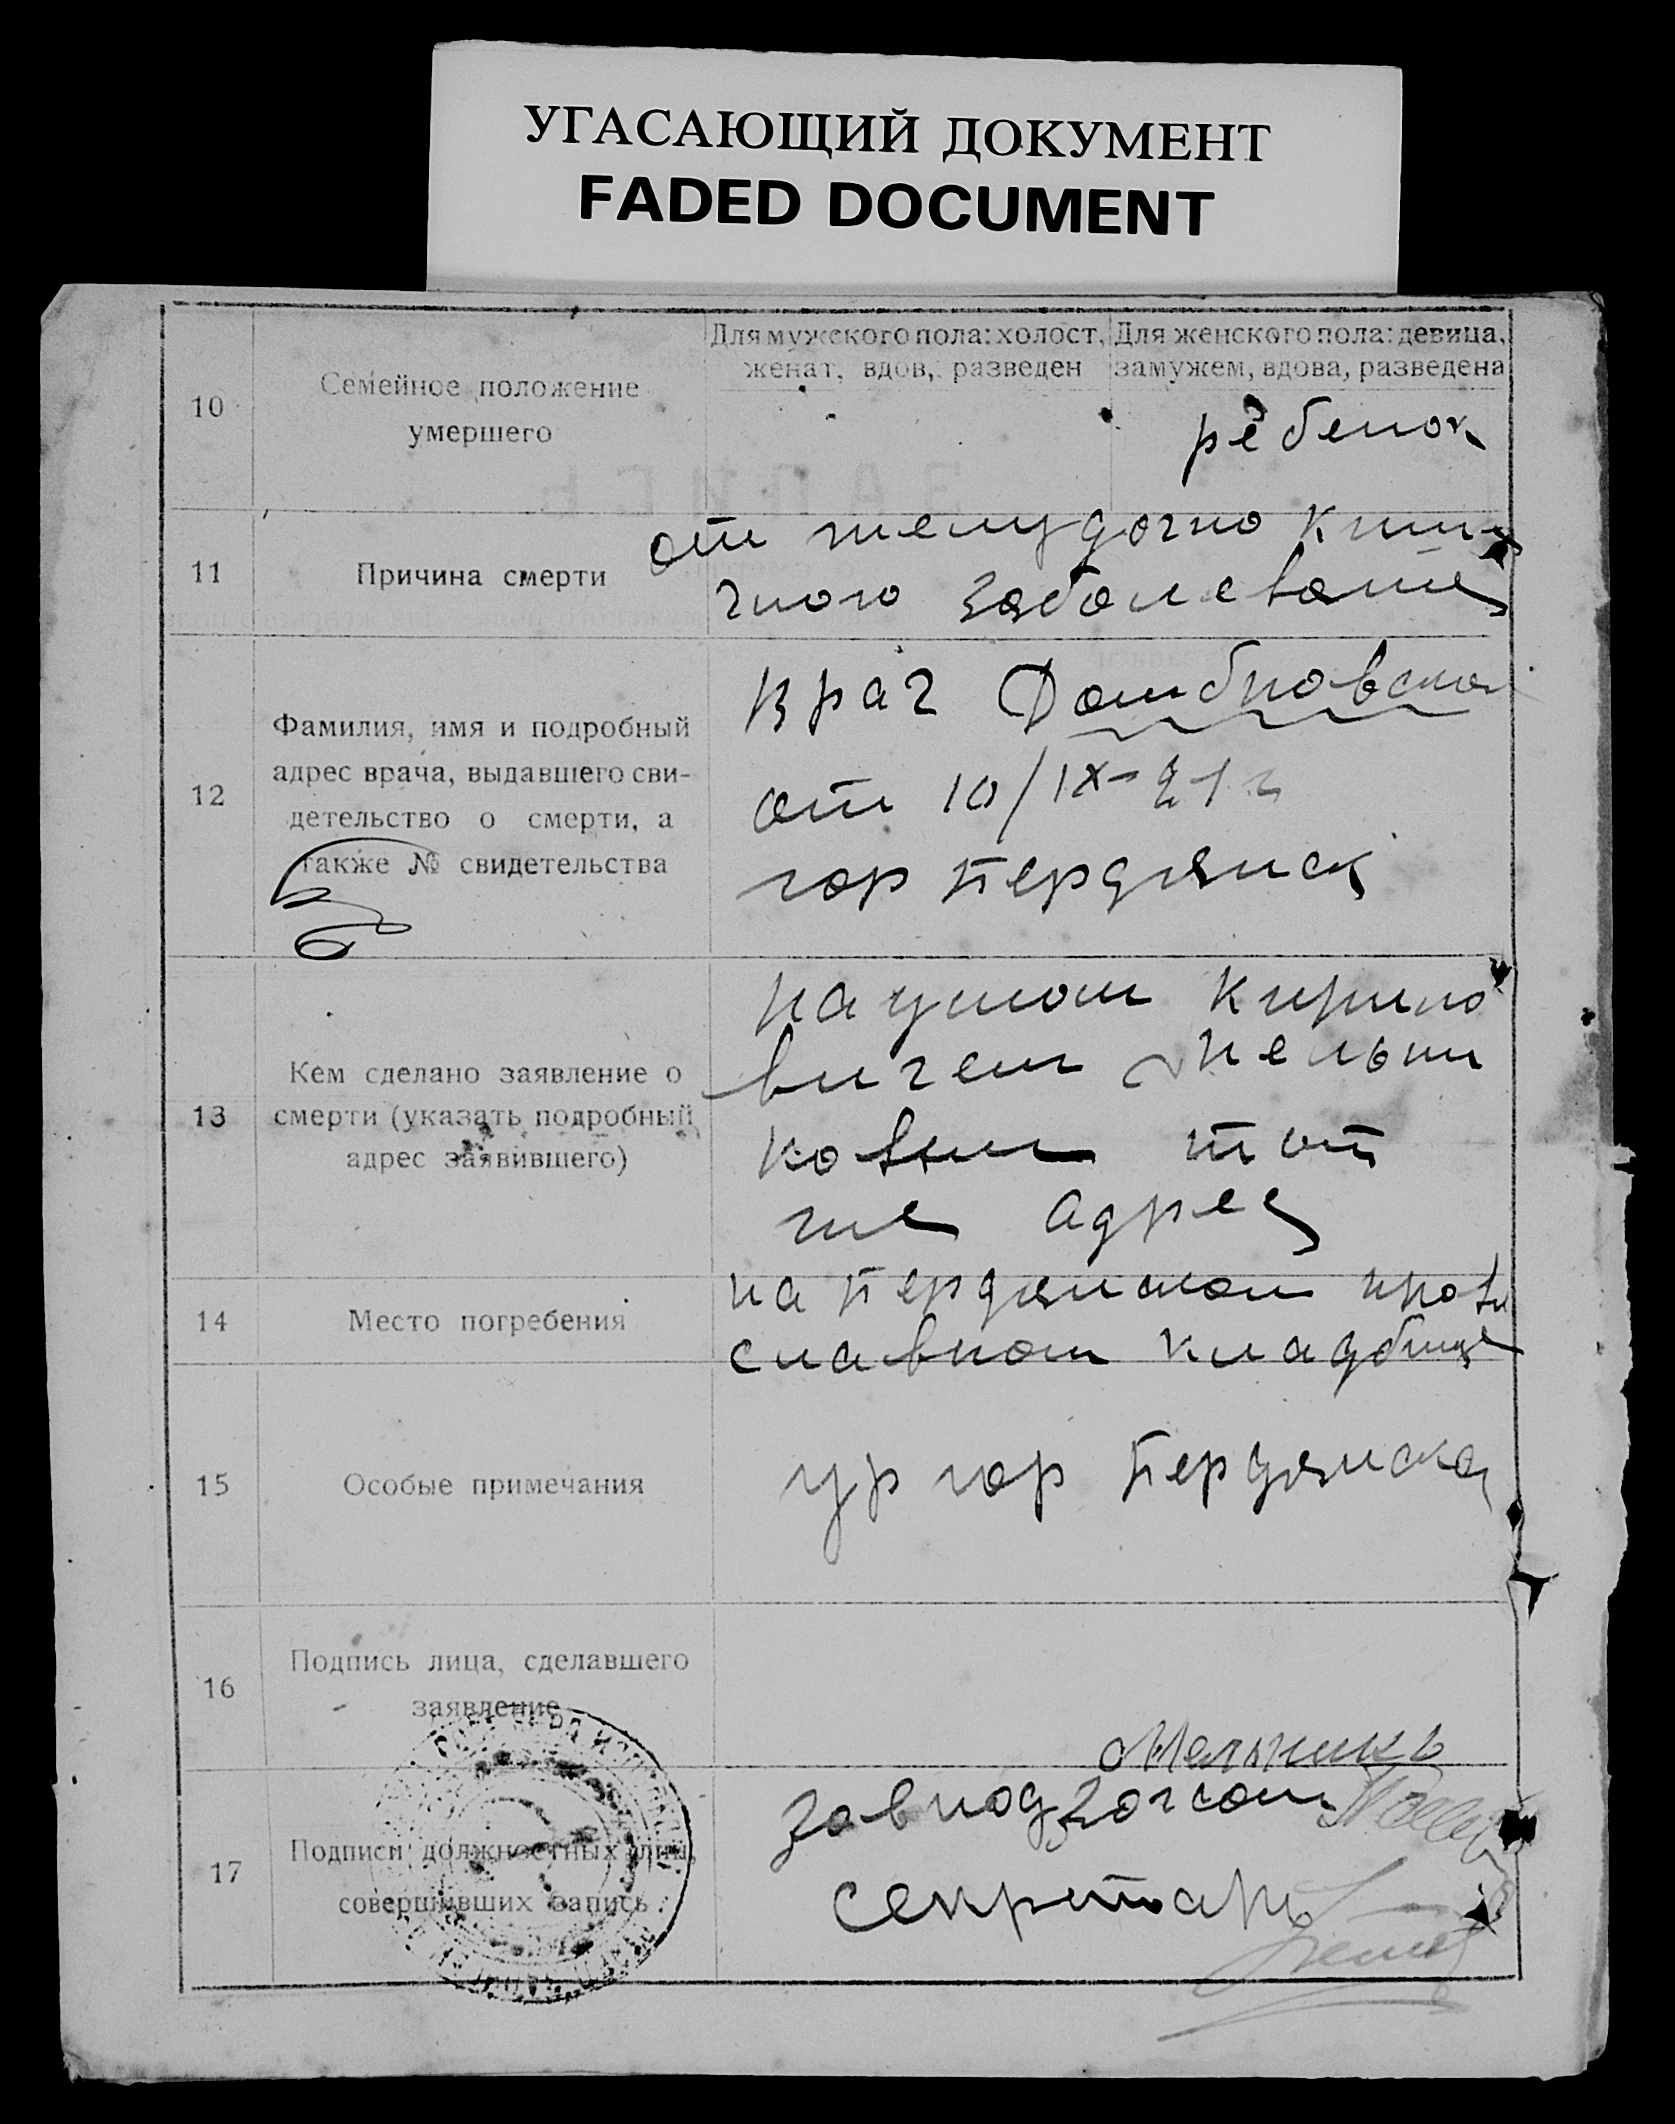 УГАСАЮЩИЙ ДОКУМЕНТ
FADED DOCUMENT
10
Семейное положение
умершего
Для мужского пола: холост,
женат, вдов, разведен
Для женского пола: девица,
замужем, вдова, разведена
ребенок
11
Причина смерти
от желудочно киш-
чного заболевания
12
Фамилия, имя и подробный
адрес врача, выдавшего сви-
детельство о смерти, а
также № свидетельства
врач Домбровская
от 10/IX-21 г
гор Бердянск
13
Кем сделано заявление о
смерти (указать подробный
адрес заявившего)
Наумом Кирило
вичем Мельни
ковым тот
же адрес
14
Место погребения
на Бердянском право
славном кладбище
15
Особые примечания
ур гор Бердянска
16
Подпись лица, сделавшего
заявление
Мельников
17
Подписи должностных лиц,
совершивших запись
Завподзагсом
Секретарь